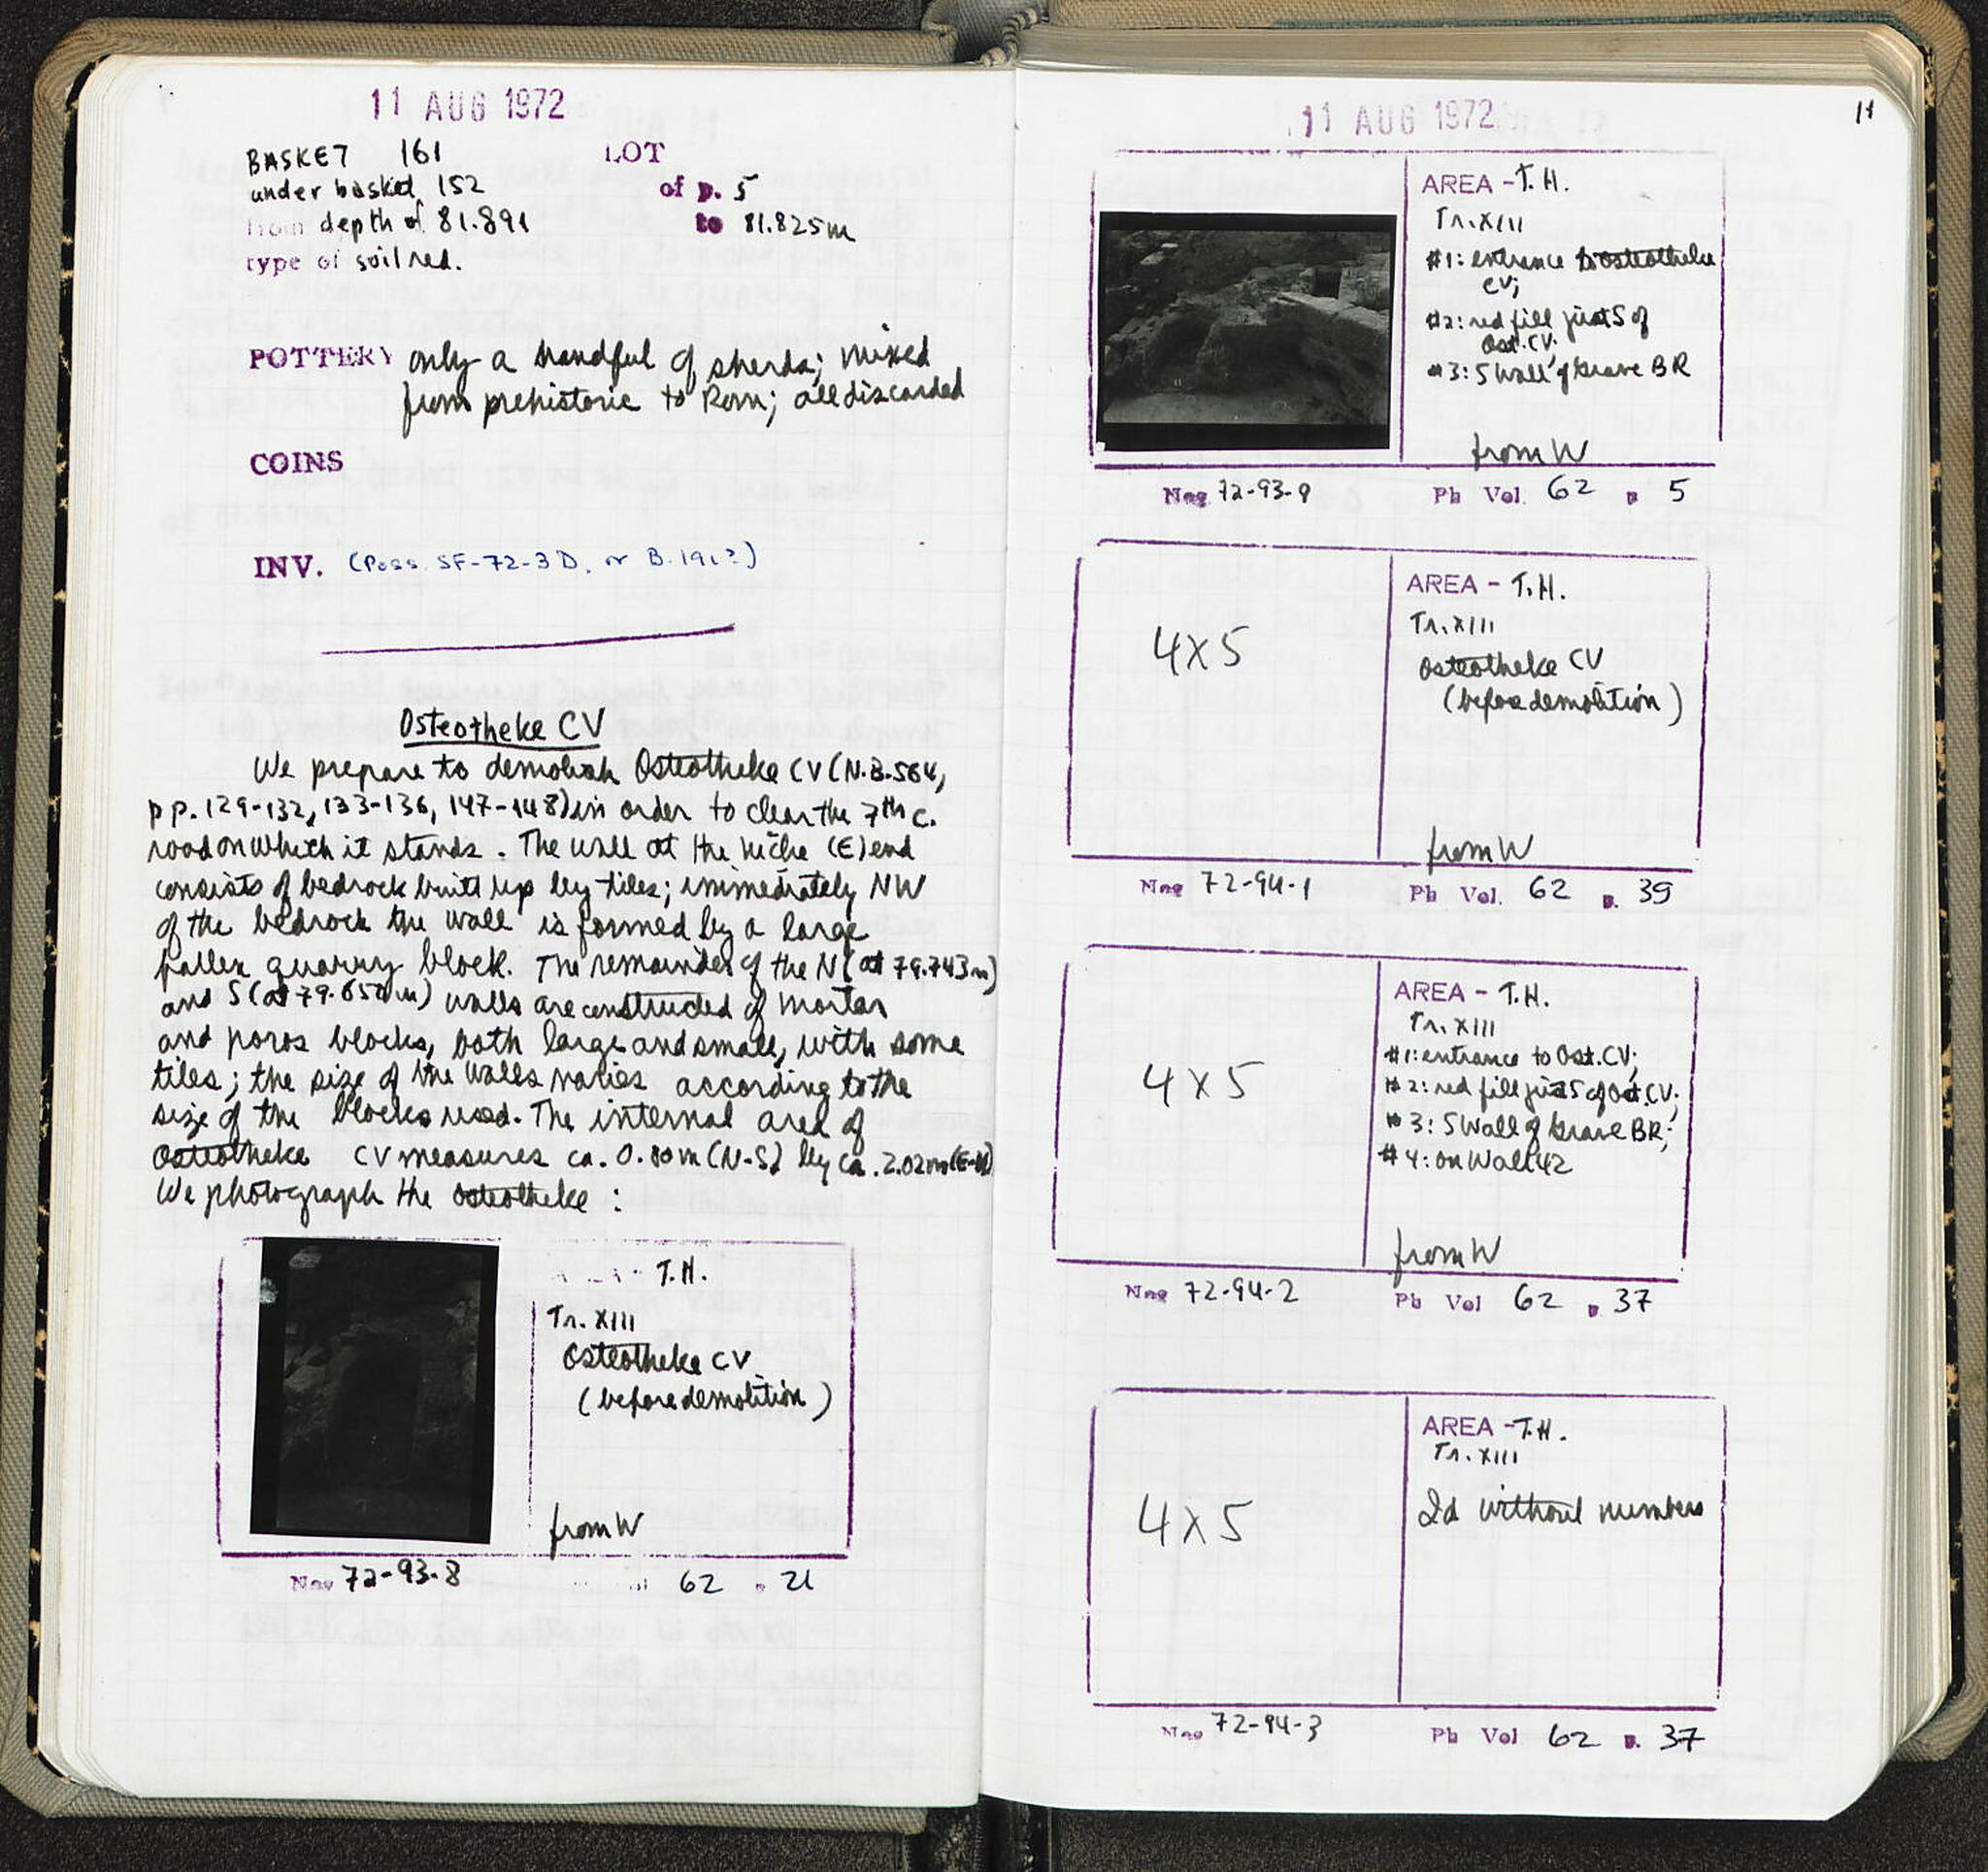 11 AUG 1972
BASKET 161 LOT
under basket 152 of p. 5
from depth of 81.891 to 81.825m
type of soil red.
POTTERY only a handful of sherds; mixed
from prehistoric to Rom; all discarded
COINS
INV. (Poss. SF-72-3D, or B. 191?)
Osteotheke CV
We prepare to demolish Osteotheke CV (N.B. 564,
pp. 129-132, 133-136, 147-148) in order to clear the 7th c.
road on which it stands. The wall at the niche (E) end
consists of bedrock built up by tiles; immediately NW
of the bedrock the wall is formed by a large
fallen quarry block. The remainder of the N (at 79.743m)
and S (at 79.650m) walls are constructed of mortar
and poros blocks, both large and small, with some
tiles; the size of the walls varies according to the
size of the blocks used. The internal area of
Osteotheke CV measures ca. 0.80m (N-S) by ca. 2.02m (E-W)
We photograph the osteotheke :
T.H.
Tr. XIII
Osteotheke CV
(before demolition)
from W
Neg 72-93-8 62 p 21
11 AUG 1972
11
AREA - T.H.
Tr. XIII
#1: entrance to osteotheke
CV;
#2: red fill just S of
Ost. CV;
#3: S wall of Grave BR
from W
Neg. 72-93-9 Ph Vol. 62 p 5
4x5
AREA - T.H.
Tr. XIII
Osteotheke CV
(before demolition)
from W
Neg 72-94-1 Ph Vol. 62 p. 39
4x5
AREA - T.H.
Tr. XIII
#1: entrance to Ost. CV;
#2: red fill just S of Ost. CV;
#3: S Wall of Grave BR;
#4: on Wall 42
from W
Neg 72-94-2 Ph Vol 62 p 37
4x5
AREA - T.H.
Tr. XIII
Id without numbers
Neg 72-94-3 Ph Vol 62 p. 37